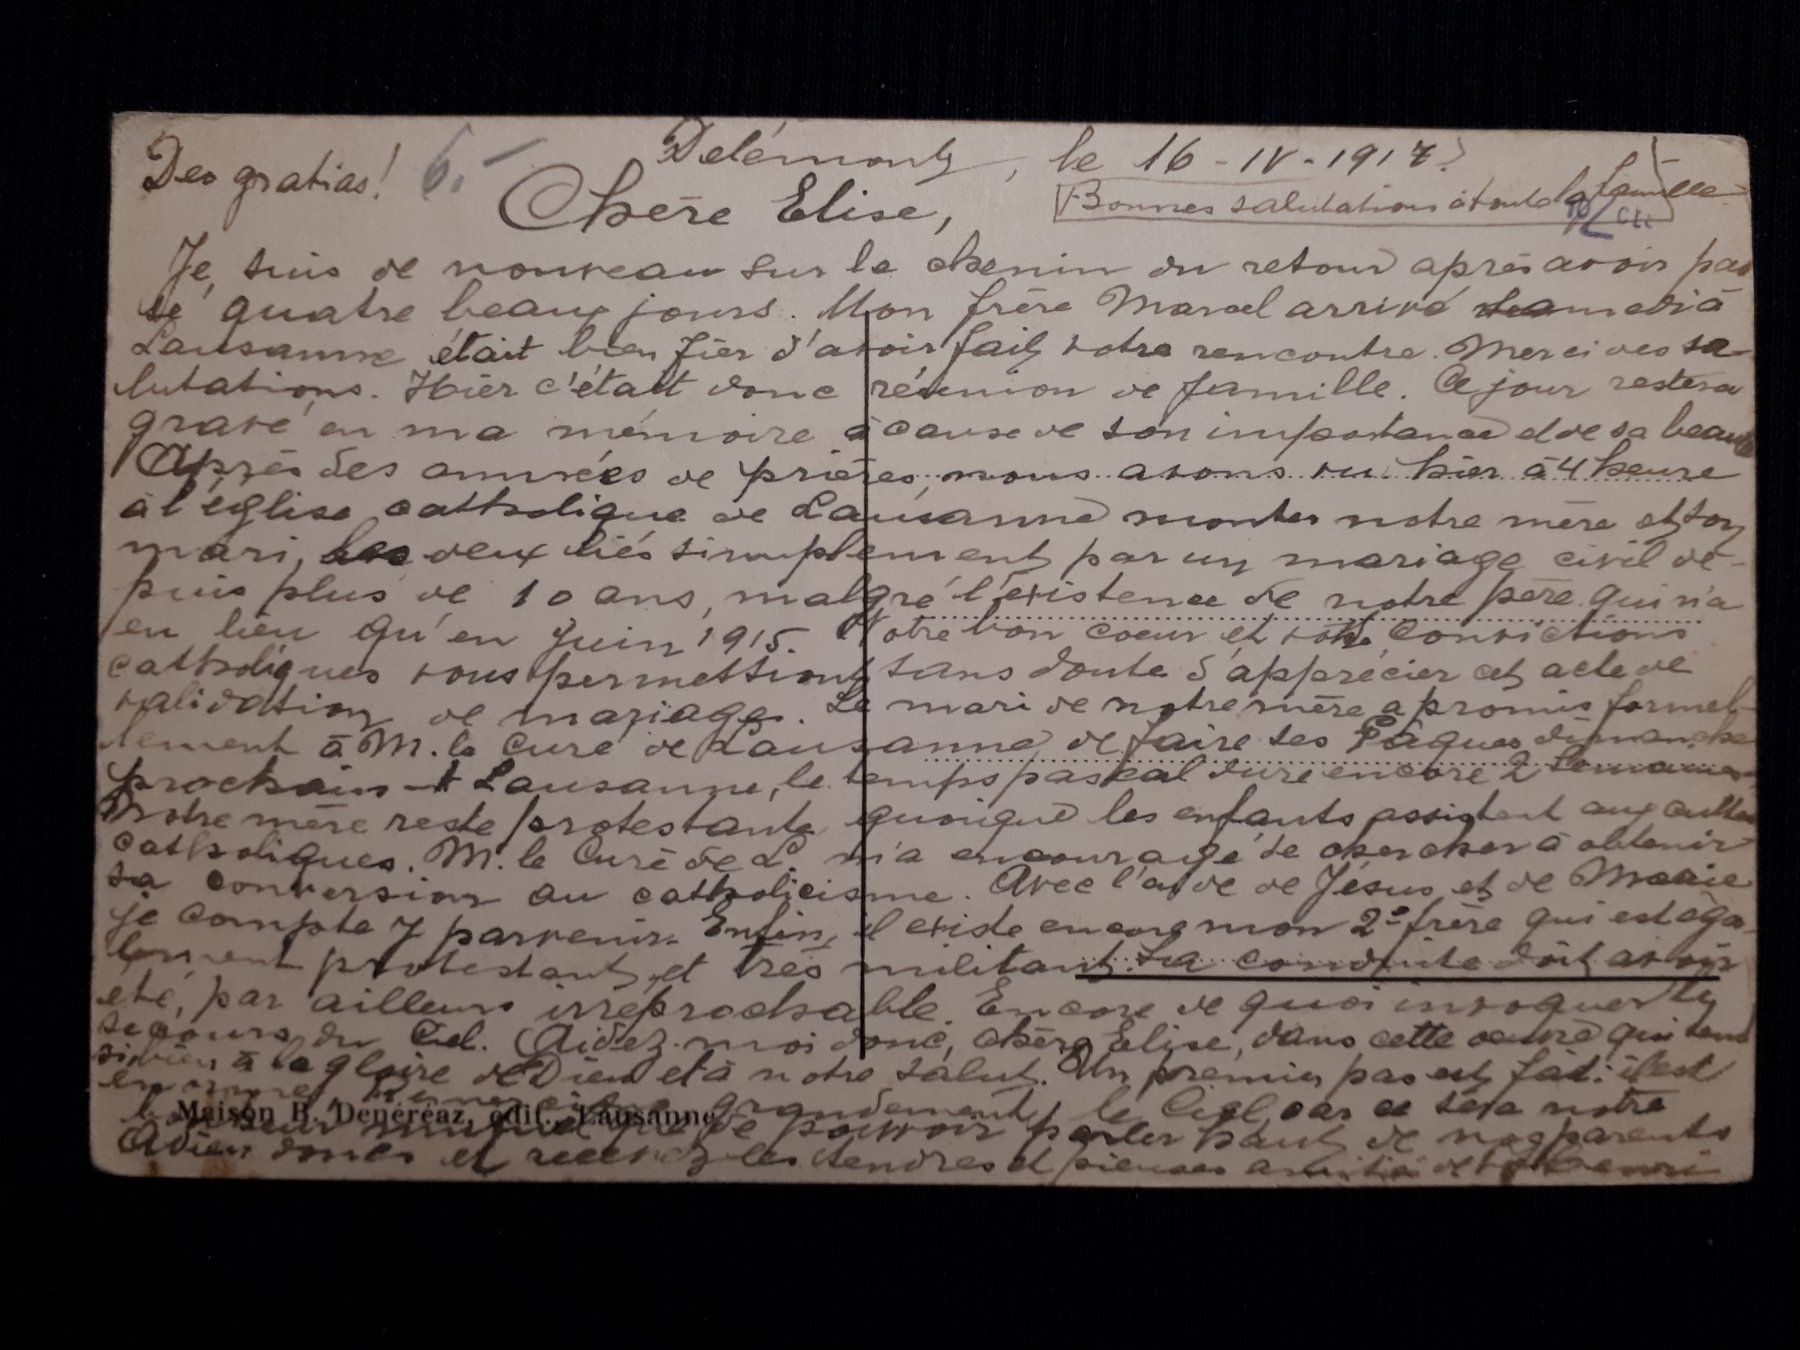 Deo gratias! 6.– Delémont, le 16-IV-1917.
Chère Elise,
Bonnes salutations à toute la famille
Je suis de nouveau sur le chemin du retour après avoir pas
sé quatre beaux jours. Mon frère Marcel arrivé samedi à
Lausanne était bien fier d'avoir fait votre rencontre. Merci des sa-
lutations. Hier c'était donc réunion de famille. Ce jour restera
gravé en ma mémoire à cause de son importance et de sa beauté
Après des années de prières, nous avons vu hier à 4 heure
à l'église catholique de Lausanne monter notre mère et son
mari, deux liés simplement par un mariage civil de-
puis plus de 10 ans, malgré l'existence de notre père qui n'a
eu lieu qu'en Juin 1915. Votre bon coeur et votre convictions
catholiques vous permettront sans doute d'apprécier cet acte de
validation de mariage. Le mari de notre mère a promis formel-
lement à M. le Curé de Lausanne de faire ses Pâques dimanche
prochain. A Lausanne, le temps pascal dure encore 2 semaines.
Notre mère reste protestante quoique les enfants assistent aux cultes
catholiques. M. le Curé de L. m'a encouragé de chercher à obtenir
sa conversion au catholicisme. Avec l'aide de Jésus et de Marie
je compte y parvenir. Enfin, il existe encore mon 2e frère qui est éga-
lement protestant et très militant. Sa conduite doit avoir
été, par ailleurs irréprochable. Encore de quoi invoquer le
secours du Ciel. Aidez-moi donc, chère Elise, dans cette oeuvre qui tend
si bien à la gloire de Dieu et à notre salut. Un premier pas est fait: il est
grandement le Ciel car ce sera notre
Maison B. Denéréaz, édit., Lausanne
de pouvoir parler haut de nos parents
Adieu donc et recevez les tendres et pieuses amitiés de Henri